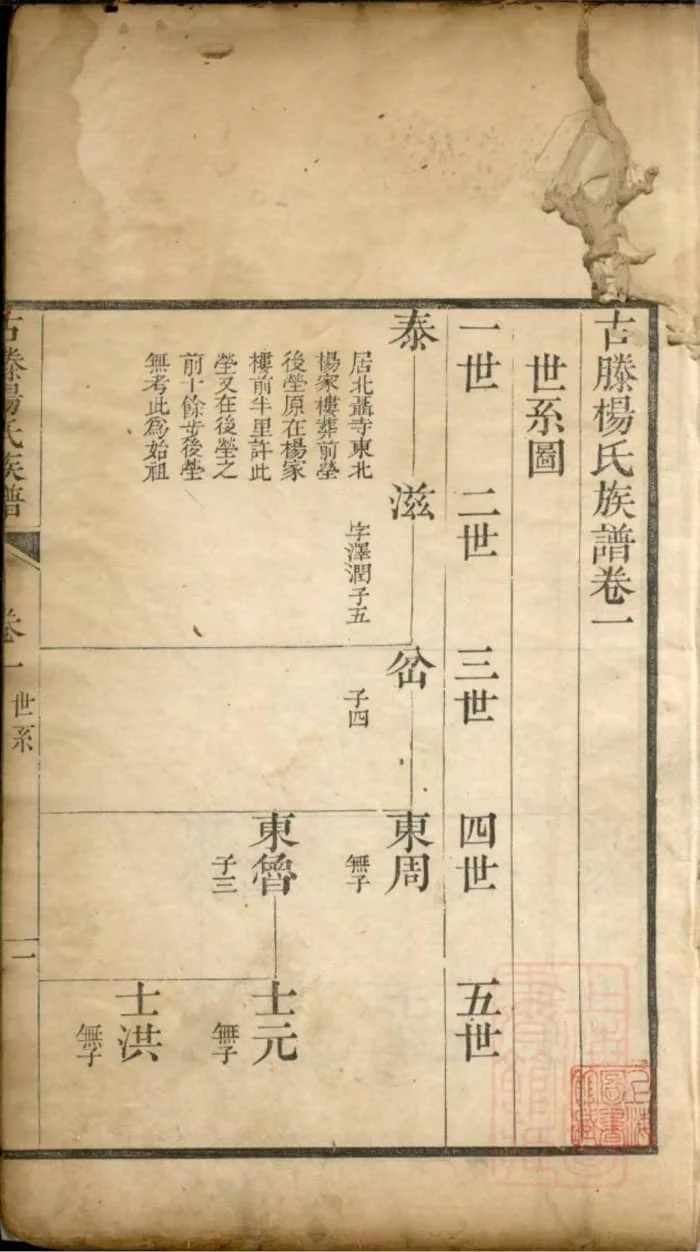 古滕楊氏族譜卷一
世系圖
一世 二世 三世 四世 五世
泰 滋 峃 東周
居北藠寺東北
楊家樓葬前塋
後塋原在楊家
樓前半里許此
塋又在後塋之
前十餘步後塋
無考此為始祖
字澤潤子五
子四
無子
東魯
子三
士元
無子
士洪
無子
古滕楊氏族譜 卷一 世系 一
上海圖書館藏